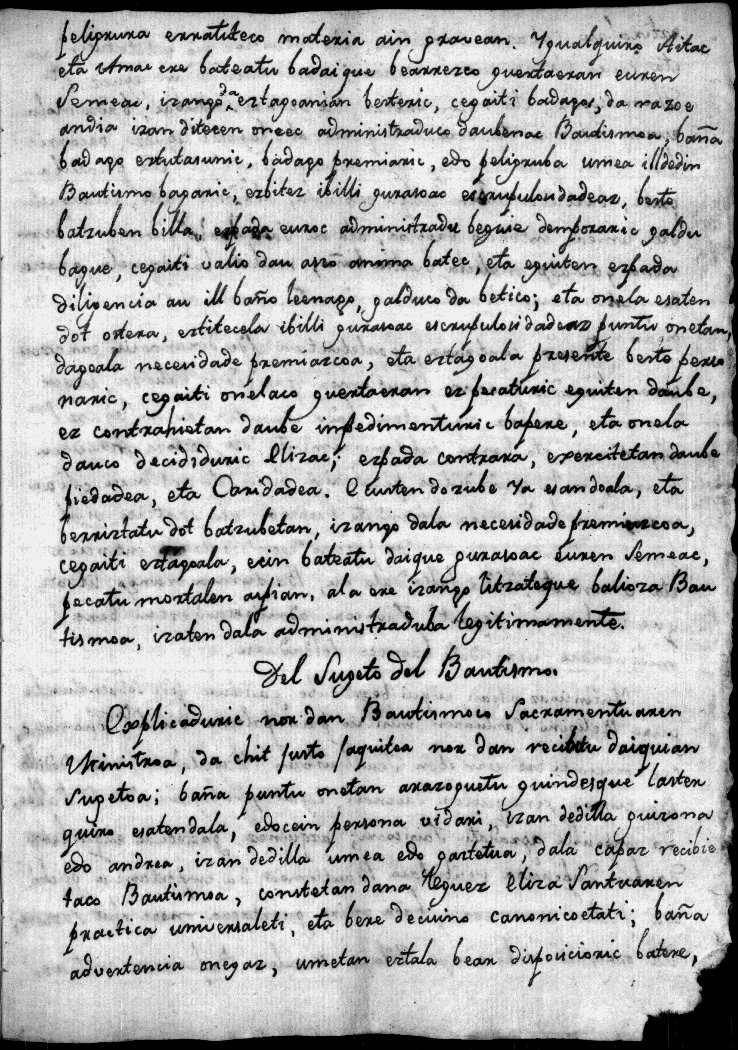 peligrura erratuteco materia ain gravean. Ygualquiro Aitac
eta Amac ere bateatu badaique bearrezco guertaeran euren
Semeac, izango da eztagoanian besteric, cegaiti badagoz, da razoe
andia izan ditecen onec administraduco daubenac Bautismoa; baña
badago eztutasunic, badago premiaric, edo peligruba umea illdedin
Bautismo bagaric, ezbitez ibilli gurasoac escrupulosidadeaz, beste
batzuben billa; ezpada euroc administradu beguie demporaric galdu
bague, cegaiti valio dau asco anima batec, eta eguiten ezpada
diligencia au ill baño leenago, galduco da betico; eta onela esaten
dot ostera, eztitecela ibilli gurasoac escrupulosidadeaz puntu onetan,
dagoala necesidade premiazcoa, eta eztagoala presente beste perso
naric, cegaiti onelaco guertaeran ez pecaturic eguiten daube,
ez contrahietan daube impedimenturic bapere, eta onela
dauco decididuric Elizac; ezpada contrara, exercitetan daube
piedadea, eta Caridadea. Ecusten dozube Ya esandoala, eta
berriztatu dot batzubetan, izango dala necesidade premiazcoa,
cegaiti eztagoala, ecin bateatu daique gurasoac euren Semeac,
pecatu mortalen azpian, ala ere izango litzateque balioza Bau
tismoa, izaten dala administraduba legitimamente.
Del Sugeto del Bautismo.
Explicaduric nor dan Bautismoco Sacramentuaren
Ministroa, da chit justo jaquitea nor dan recibitu daiquian
Sugetoa; baña puntu onetan arazoguetu guindesque laster
quiro esatendala, edocein persona vidari, izan dedilla guizona
edo andrea, izan dedilla umea edo gaztetua, dala capaz recibie
taco Bautismoa, constetan dana leguez Eliza Santuaren
practica universaleti, eta bere decisino canonicoetati; baña
advertencia onegaz, umetan eztala bear disposicioric batere,